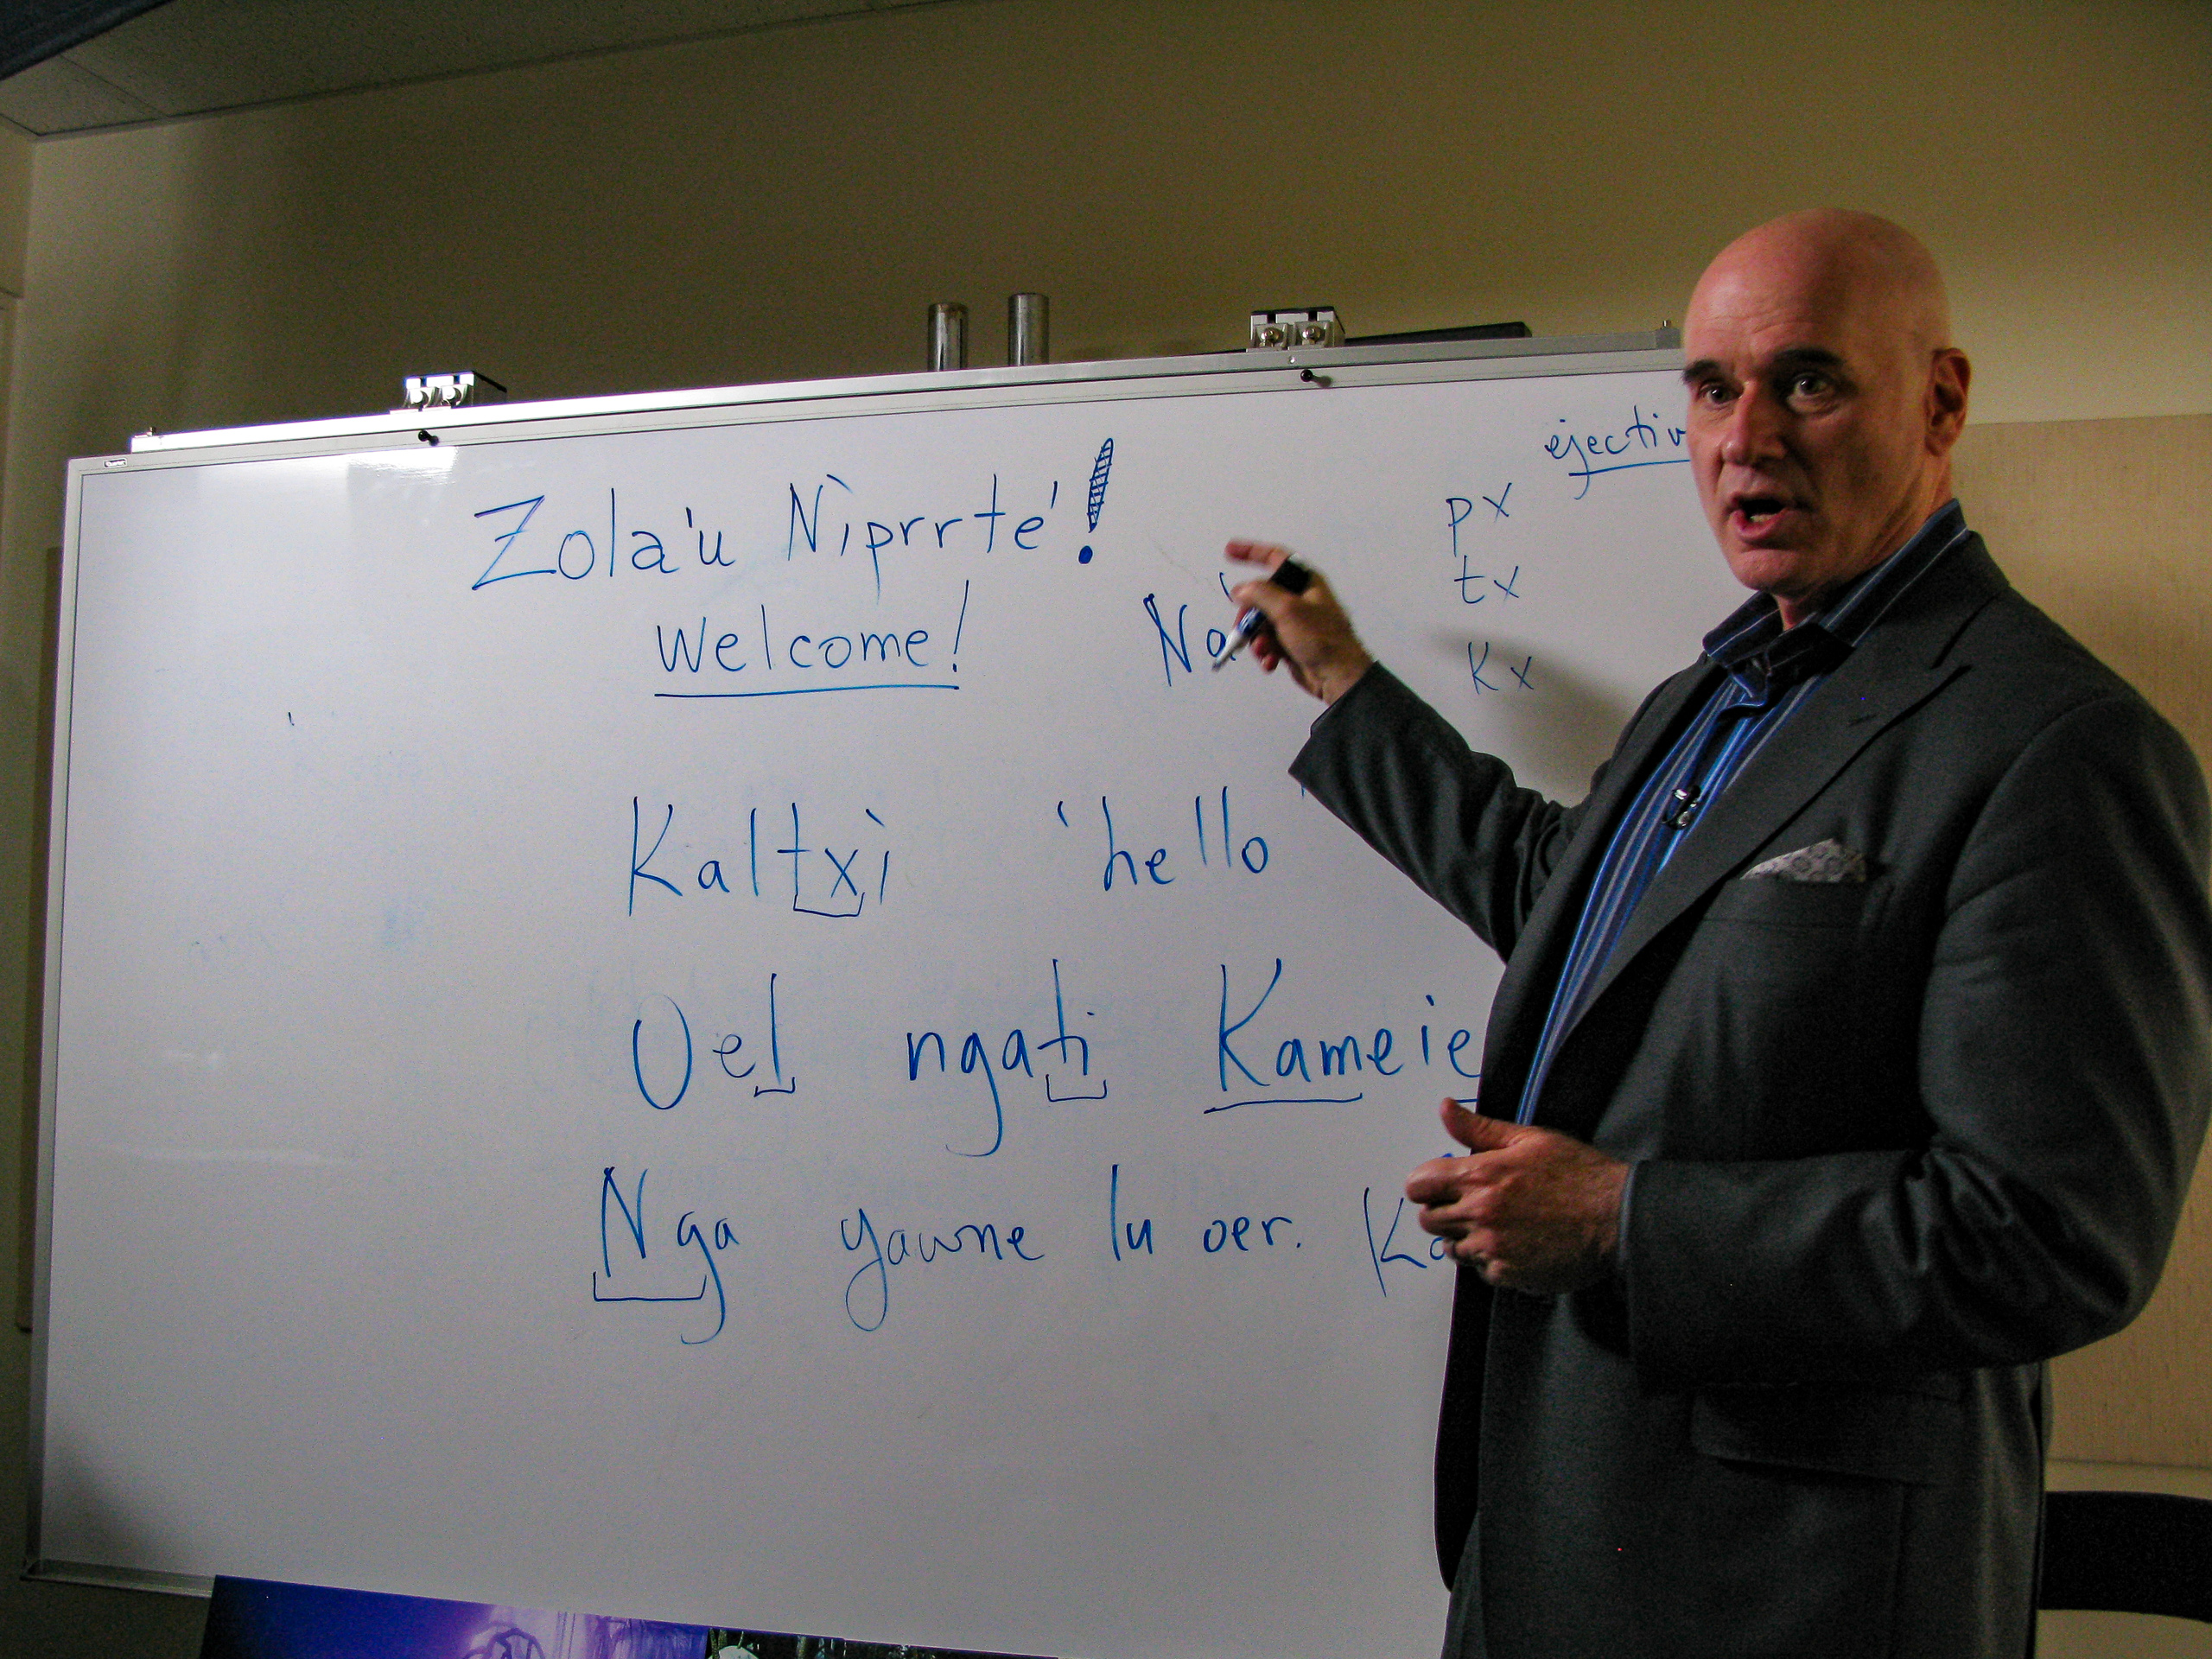 Zola'u Nìprrte'!
Welcome!
ejectiv
px
tx
kx
Kaltxì 'hello'
Oel ngati Kameie
Nga yawne lu oer.